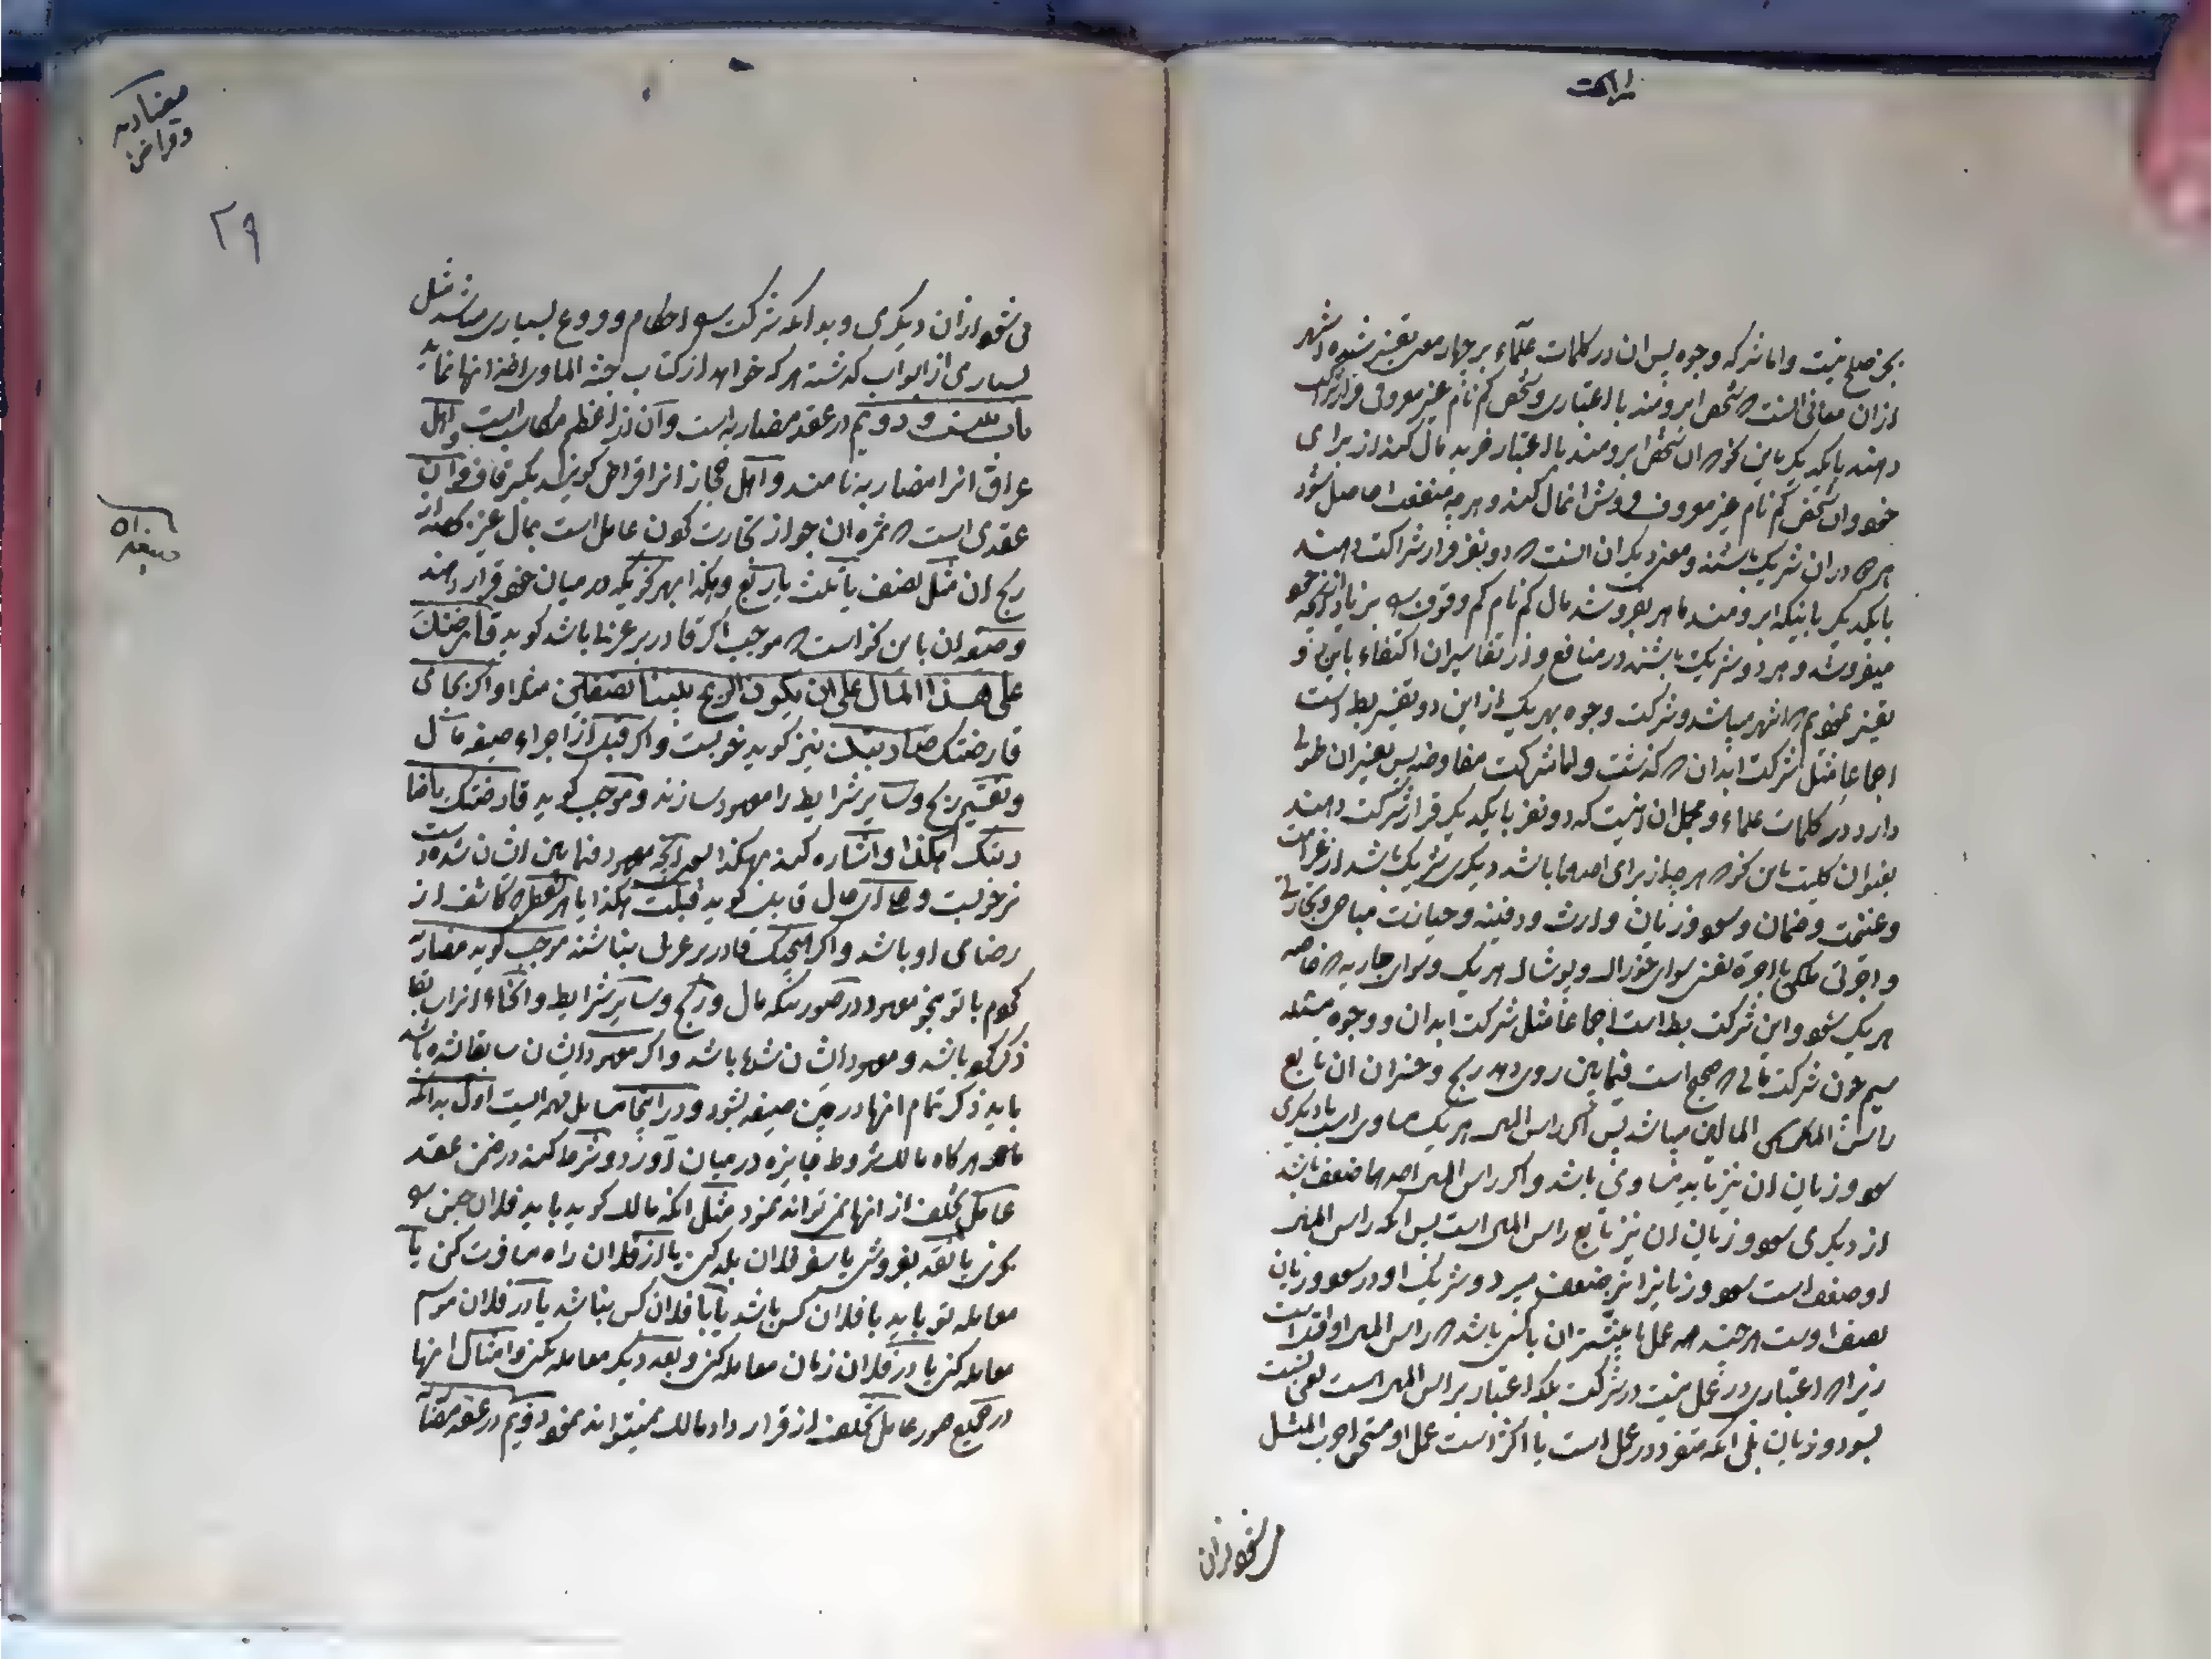 شراکت
بجز صلح نیست و اما شرکه وجوه پس ان در کلمات علماء بر چهار معنی تفسیر شده و اشهر
ازان معانی انست که شخص ابرومند با اعتباری و شخص کم نام غیر معروفی قرار شراکت
دهند با یکدیگر باین نحو که ان شخص ابرومند با اعتبار خرید مال کند از برای
خود وان شخص کم نام غیر معروف فروش انمال کند و هر چه منفعت حاصل شود
هر دو دران شریک باشند و معنی دیگر ان انست که دو نفر قرار شراکت دهند
با یکدیگر باینکه ابرومند ماهر بفروشد مال کم نام کم وقوف را بزیاده از آنچه خود
میفروشد و هر دو شریک باشند در منافع و از تفاسیر ان اکتفاء باین دو
تفسیر نمودیم که اشهر میباشد و شرکت وجوه بهر یک از این دو تفسیر باطل است
اجماعا مثل شرکت ابدان که گذشت و اما شرکت مفاوضه پس تفسیر ان طولی
دارد در کلمات علماء و مجمل ان انیست که دو نفر با یکدیگر قرار شرکت دهند
بعنوان کلیت باین نحو که هر چه از برای احدهما باشد دیگری شریک باشد از غرامت
و غنیمت و ضمان و سود و زیان و ارث و دفینه و حیازت مباحی و تجارتی
و اجرتی ملکی یا اجرة نفسی سوای خوراک و پوشاک هر یک و سوای جاریه که خاصه
هر یک شود و این شرکت باطل است اجماعا مثل شرکت ابدان و وجوه مسئله
سیم چون شرکت مالی که صحیح است فیمابین روی دهد ربح و خسران ان تابع
راس المالین میباشد پس اگر راس المال هر یک مساوی است با دیگری
سود و زیان ان نیز باید مساوی باشد و اگر راس المال احدهما ضعف باشد
از دیگری سود و زیان ان نیز تابع راس المال است پس انکه راس المال
او ضعف است سود و زیانرا نیز ضعف میبرد و شریک او در سود و زیان
نصف اوست هر چند که عمل یا بیشتر ان با کسی باشد که راس المال او قلیل است
زیرا که اعتباری در عمل نیست در شرکت بلکه اعتبار براس المال است یعنی نسبت
بسود و زیان بلی انکه متفرد در عمل است یا اکثر است عمل او مستحق اجرت المثل
می شود ازان
مضاربه
وقراض
۲۹
می شود ازان دیگری و بدانکه شرکت را احکام و فروع بسیاری میباشد مثل
بسیاری از ابواب گذشته هر که خواهد از کتاب جنة الماوی اخذ انها نماید
باب بیست و دویم در عقد مضاربه است وآن از اعظم مکاسب است و اهل
عراق انرا مضاربه نامند و اهل حجاز انرا قراض گویند بکسر قاف وان
عقدی است که ثمره ان جواز تجارت کردن عامل است بمال غیر بحصه از
ربح ان مثل نصف یا ثلث یا ربع و هکذا بهر نحویکه در میان خود قرار دهند
صیغه ان
وصیغه ان باین نحو است که موجب اگر قادر بر عربی باشد گوید قارضتک
علی هذا المال علی ان یکون الربح بیننا نصفین مثلا و اگر بجای
قارضتک ضاربتک نیز گوید خوبست و اگر قبل از اجراء صیغه مال
و تقسیم ربح و سایر شرایط را معهود سازند و موجب گوید قارضتک یا ضا
ربتک هکذا و اشاره کند بهکذا بسوی آنچه معهود فیمابین ایشان شده است
نیز خوبست و در آن حال قابل گوید قبلت هکذا یا هر لفظی که کاشف از
رضای او باشد و اگر هیچیک قادر بر عربی نباشند موجب گوید مضاربه
کردم با تو بنحو معهود در صورتیکه مال و ربح و سایر شرایط و انحاء انرا سابقا
ذکر کرده باشد و معهود ایشان شده باشد و اگر معهود ایشان سابقا نشده باشد
باید ذکر تمام انها در حین صیغه بشود و در اینجا مسایل مهمه ایست اول بدانکه
هر گاه مالک شروط جایزه در میان آورد و شرط کند در ضمن عقد
عامل تخلف از انها نمی تواند نمود مثل انکه مالک گوید باید فلان جنس را
بخری یا نقد بفروشی یا سفر فلان بلد کنی یا از فلان راه مسافرت کنی یا
معامله تو باید با فلان کس باشد یا با فلان کس نباشد یا در فلان موسم
معامله کنی یا در فلان زمان معامله کنی و بعد دیگر معامله نکنی و امثال انها
در جمیع صور عامل تخلف از قرار داد مالک نمیتواند نمود دویم در عقد مضاربه